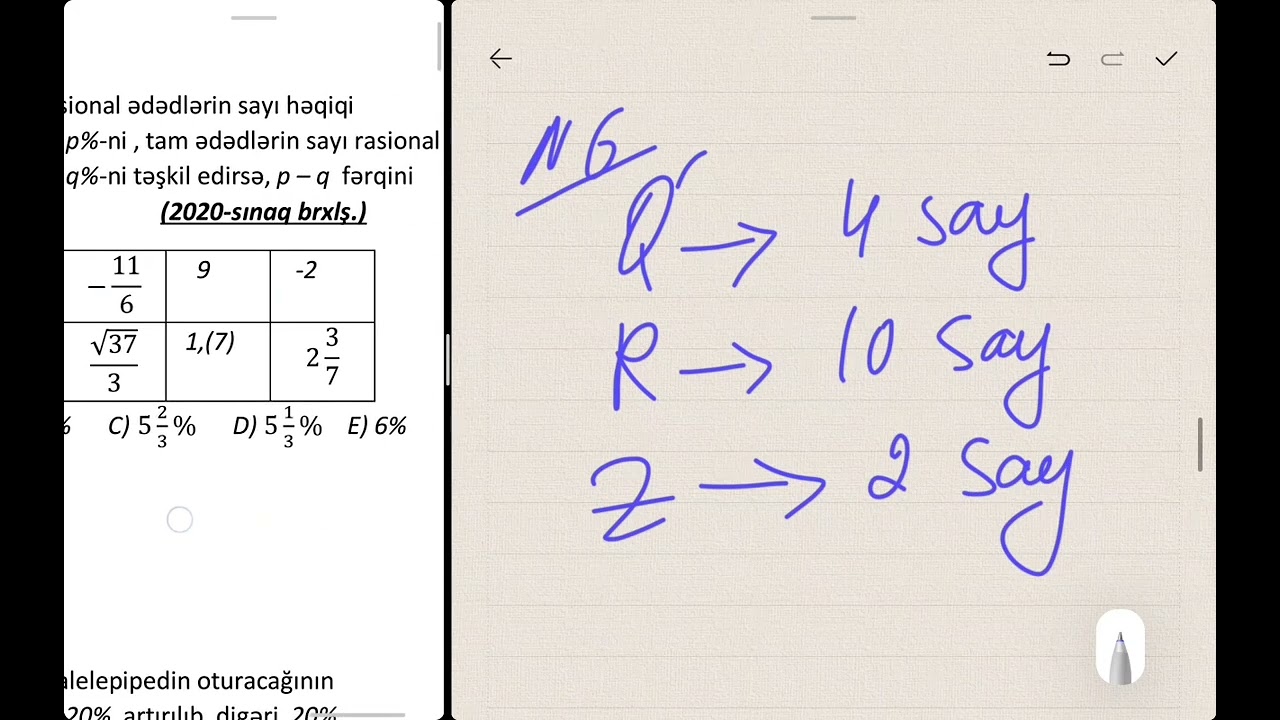 sional ədədlərin sayı həqiqi
p%-ni , tam ədədlərin sayı rasional
q%-ni təşkil edirsə, p – q fərqini
(2020-sınaq brxlş.)
−11/6 9 -2
√37/3 1,(7) 2 3/7
% C) 5 2/3 % D) 5 1/3 % E) 6%
alelepipedin oturacağının
20% artırılıb, digəri 20%
N6
Q' → 4 say
R → 10 say
Z → 2 say